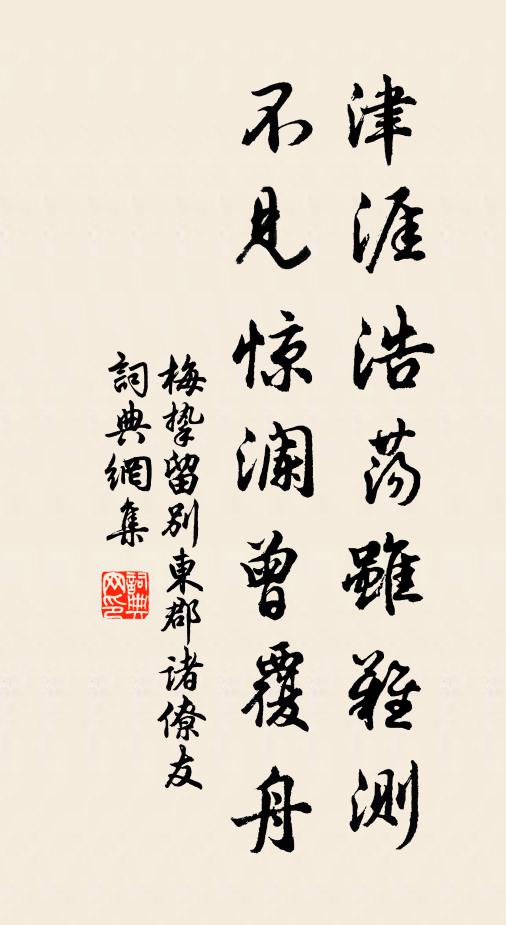 津涯浩荡雖難测
不见惊澜曾覆舟
梅挚留别東郡诸僚友
詞典網集
詞典网印